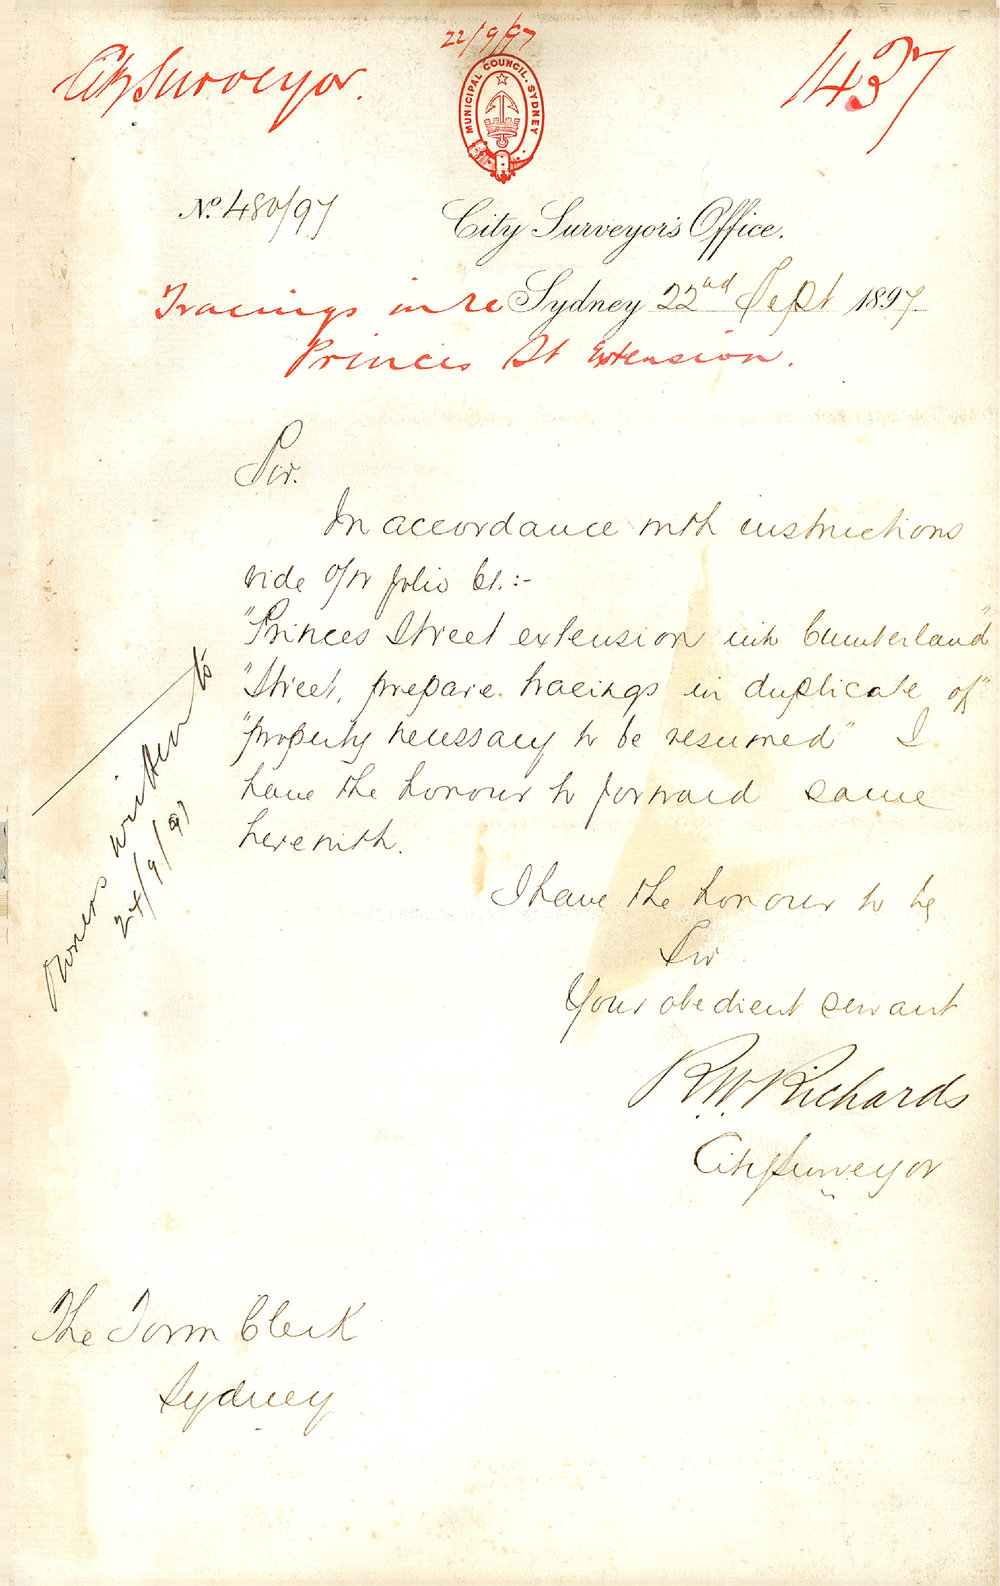 22/9/97
City Surveyor.
1437
MUNICIPAL COUNCIL. SYDNEY
No. 480/97
City Surveyor's Office.
Sydney 22nd Sept 1897
Tracings in re
Princes St Extension.
Sir.
In accordance with instructions
vide folio 61.:-
"Princes Street extension into Cumberland"
"Street, prepare tracings in duplicate of"
"property necessary to be resumed" I
have the honour to forward same
herewith.
Owners written to
24/9/97
I have the honour to be
Sir
Your obedient servant
R.W. Richards
City Surveyor
The Town Clerk
Sydney